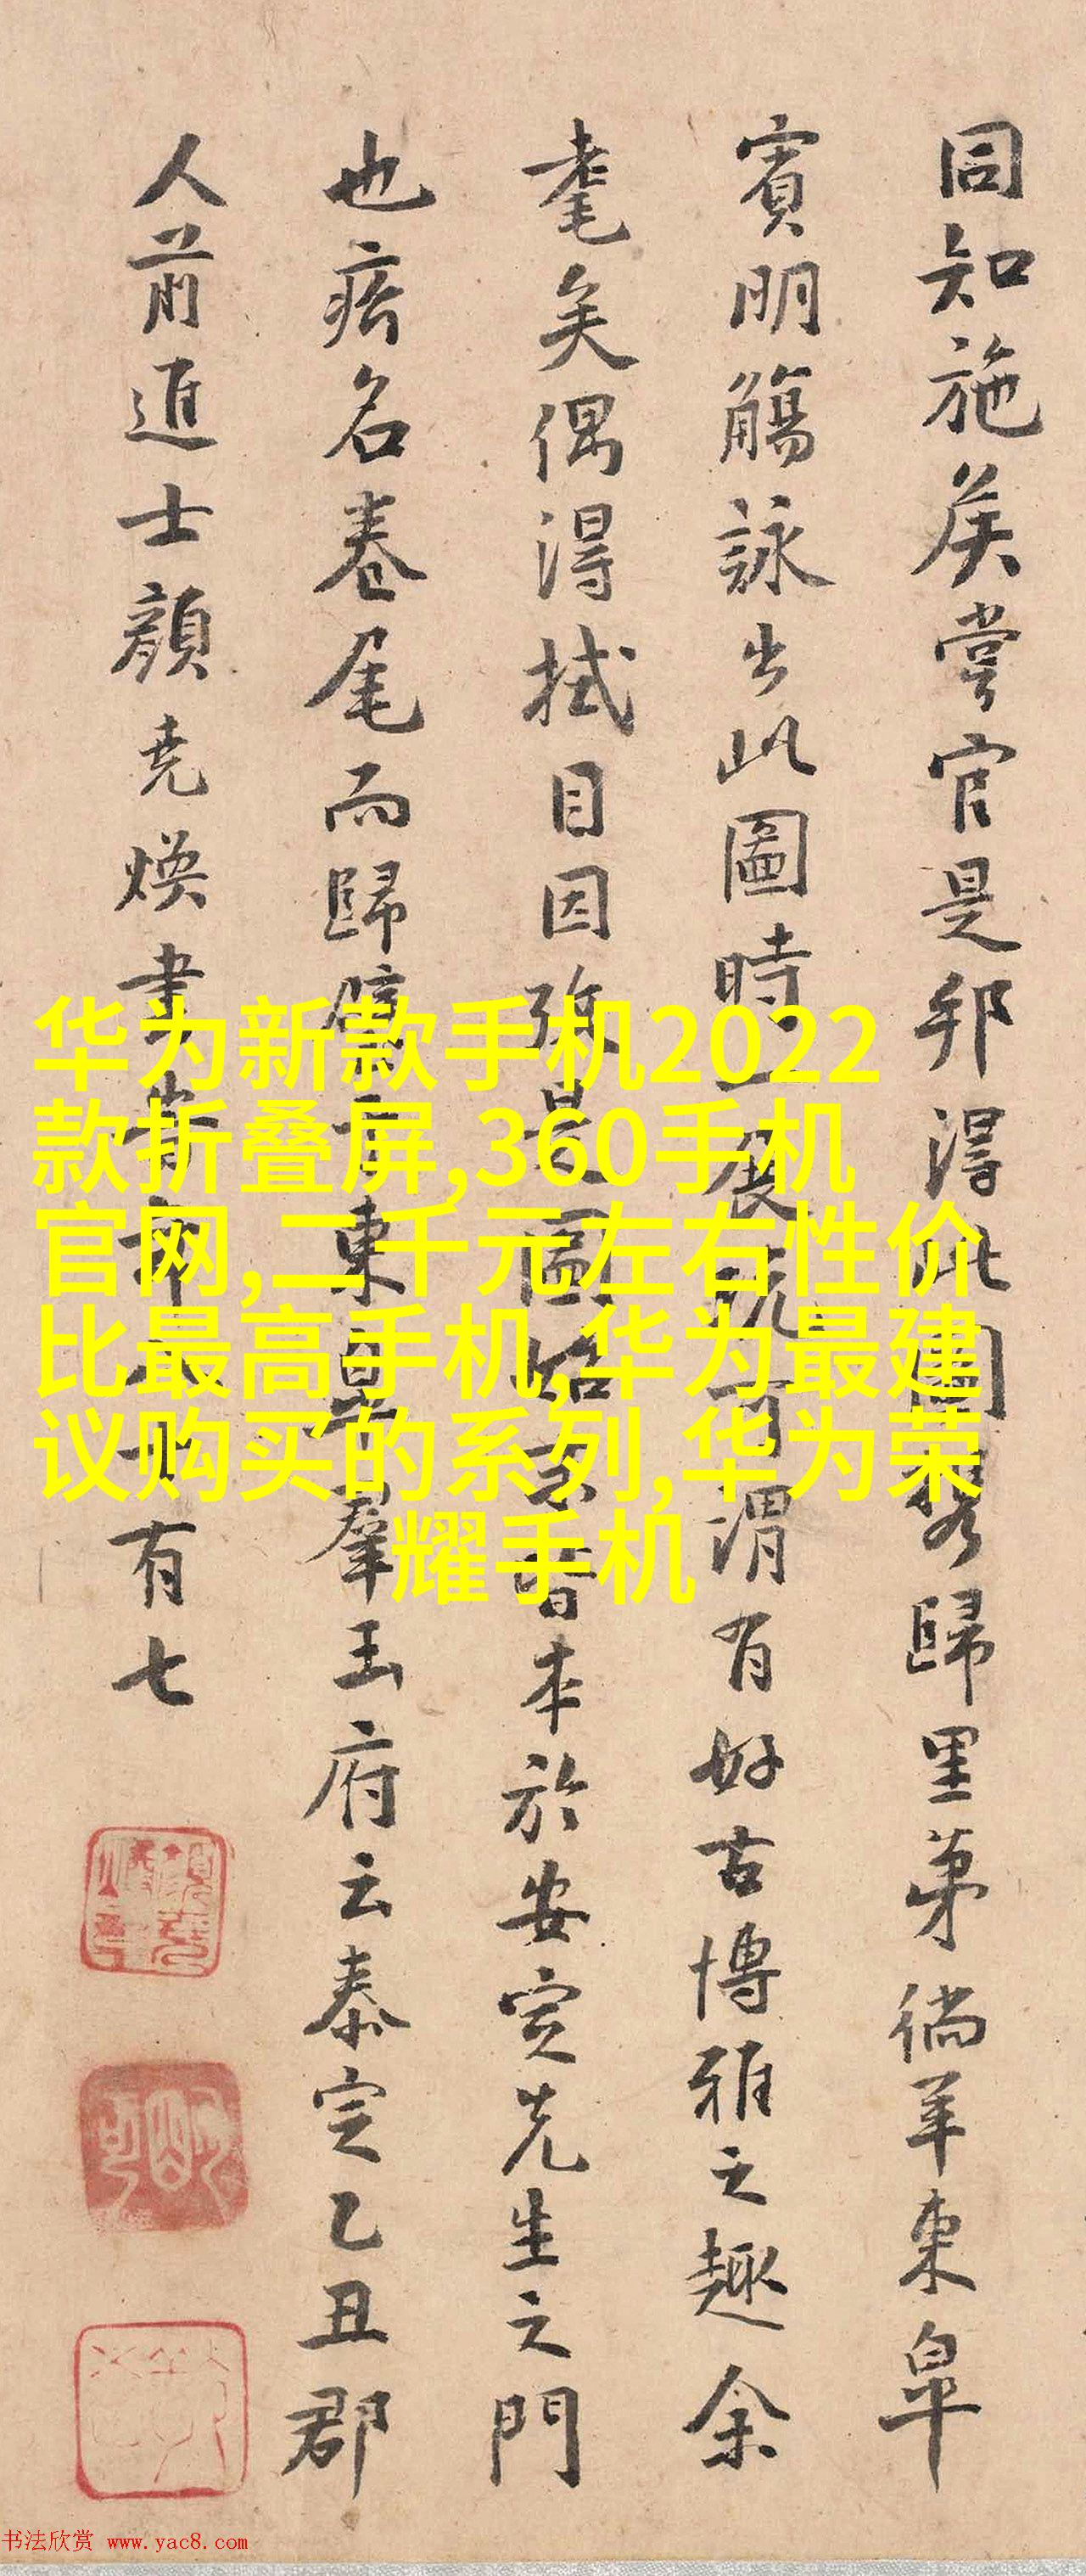 同知施侯嘗官是邦淂此圖携歸里苐徜羊東皐
賓朋觴詠出此圖時一展玩可謂有好古博雅之趣余
耄矣偶淂拭目因是圖始本於安定先生之門
也名卷尾而歸東皐羣玉府云泰定乙丑郡
人前進士顔堯煥書旹年八十有七
华为新款手机2022
款折叠屏,360手机
官网,二千元左右性价
比最高手机,华为最建
议购买的系列,华为荣
耀手机
书法欣赏 www.yac8.com